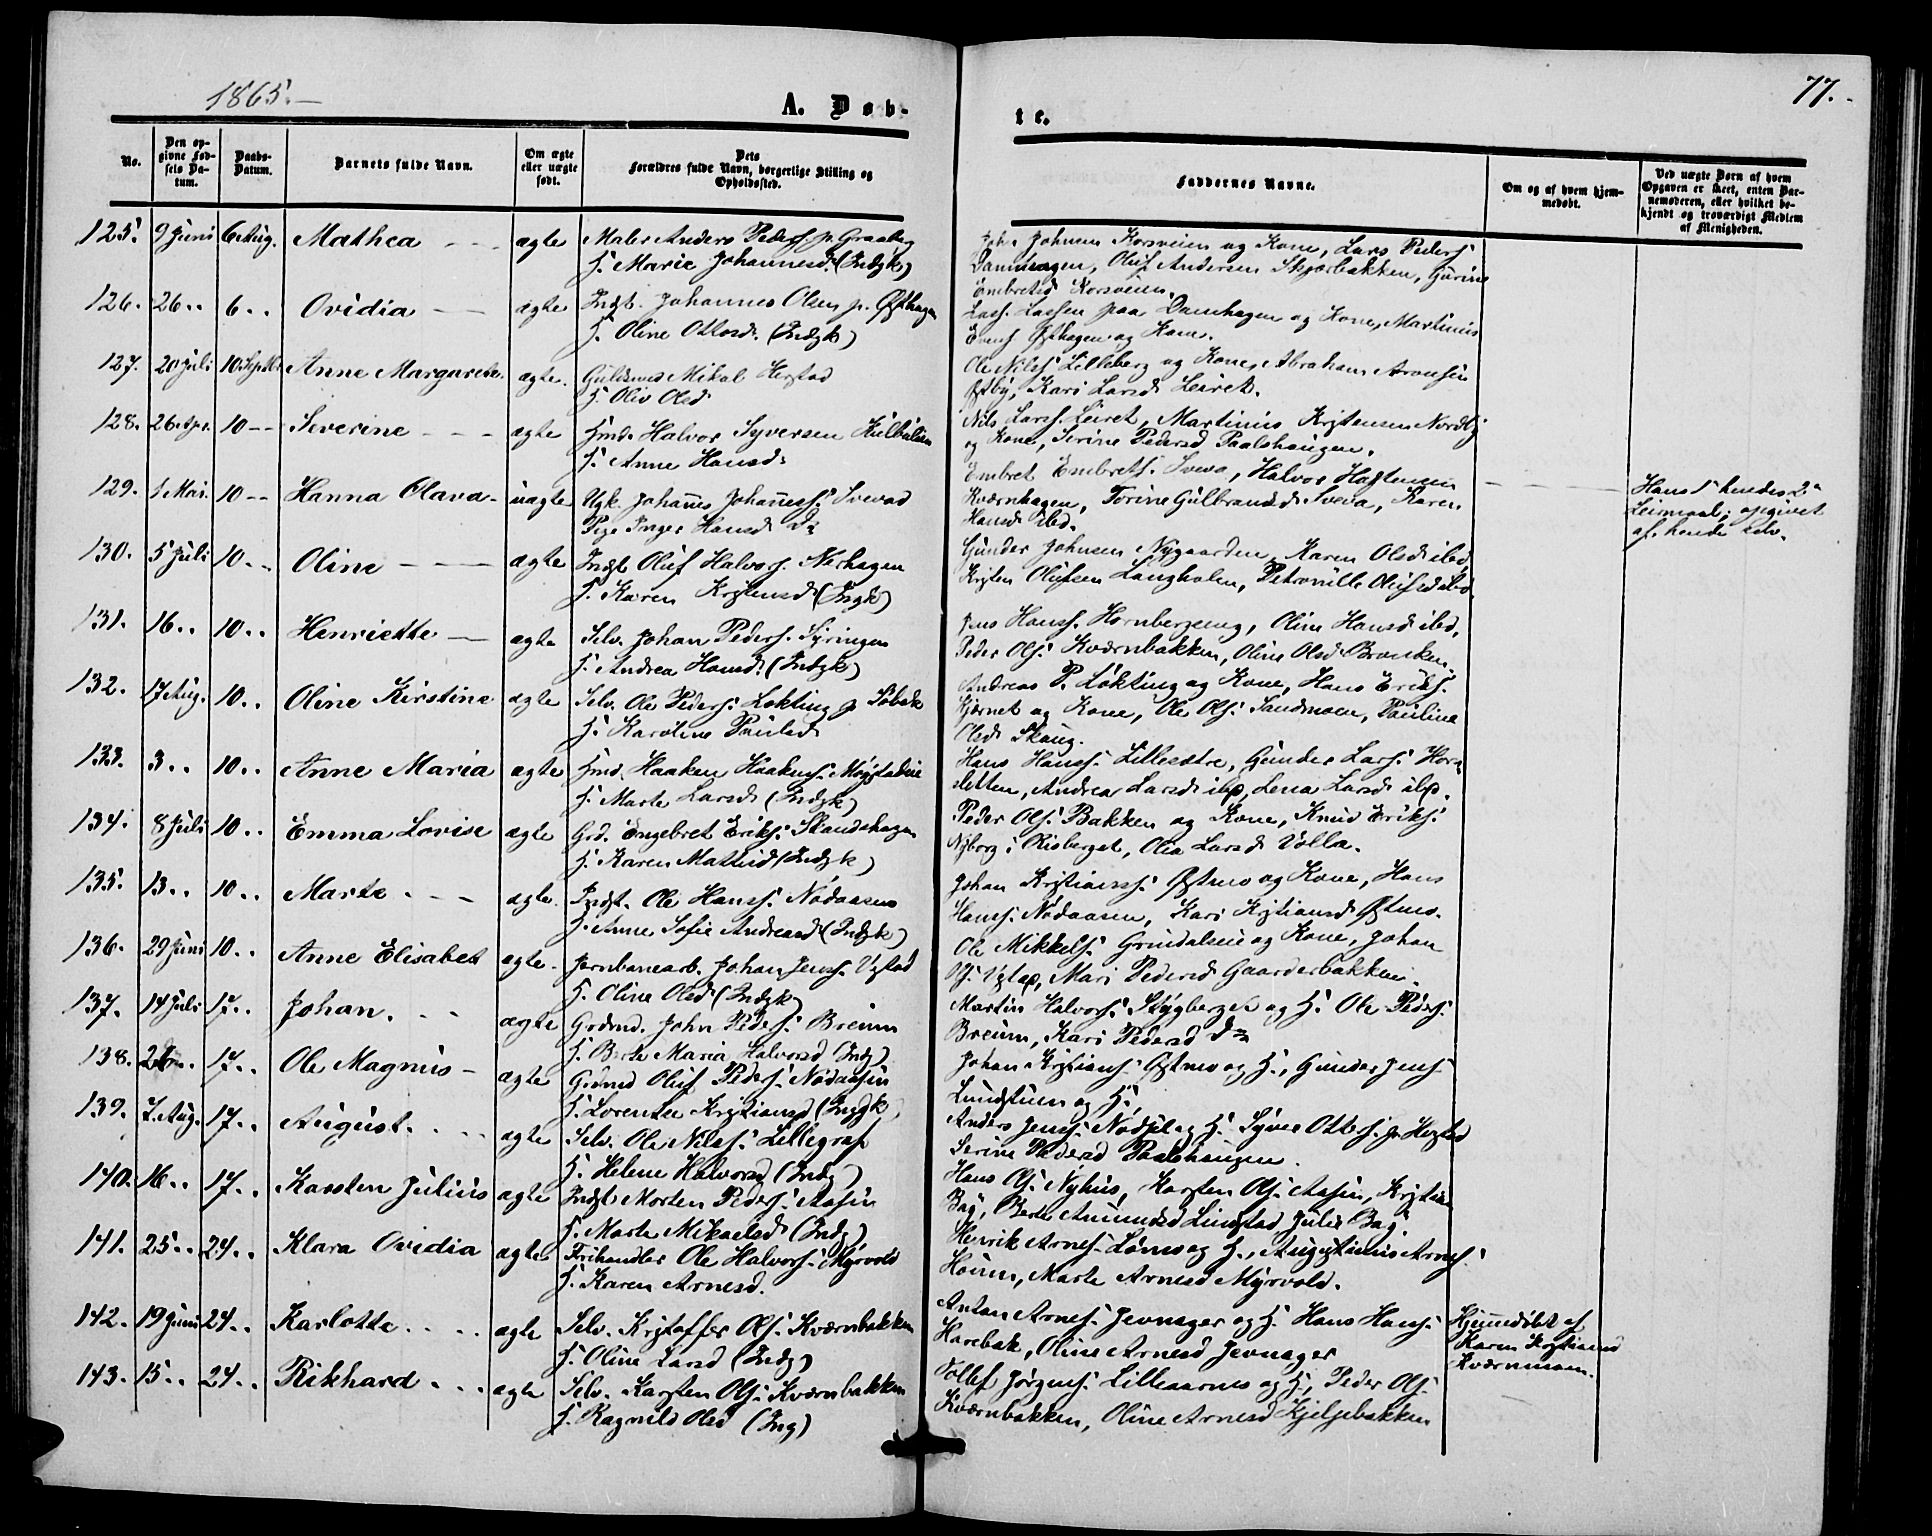 1865.—
A. Døb-
te.
77.
No.
Den op-
givne Fød-
sels Da-
tum.
Daabs-
Datum.
Barnets fulde Navn.
Om ægte
eller uægte
født.
Dets
Forældres fulde Navn, borgerlige Stilling og
Opholdssted.
Faddernes Navne.
Om og af hvem hjem-
medøbt.
Ved uægte Børn af hvem
Opgaven er skeet, enten Bar-
nemoderen, eller hvilket be-
kjendt og troværdigt Medlem
af Menigheden.
125. 9 Juni 6 Aug. Mathea - - - ægte Maler Anders Peders. p. Graaberg
H. Marie Johannesd. (Indgk)
John Johnsen Korsveien og Kone, Lars Peders
Damhagen, Oluf Andersen Skjærbakken, Gurine
Embretsd Korsveien.
126. 26.. 6.. Ovidia — ægte Indst. Johannes Olsen p. Østhagen
H. Oline Ottosd. (Indgk)
Lars Larsen paa Damhagen og Kone, Martinus
Evens Østhagen og Kone.
127. 20 Juli 10. Septb. Anne Margarete. ægte. Guldsmed Mikal Hegstad
H. Oliv Olsd
Ole Nils. Lilleberg og Kone, Abraham Aronsen
Østby, Kari Larsd. Leiret.
128. 26 Apr. 10 -- Severine - - - ægte Hmd. Halvor Syversen Kulbulien
H. Anne Hansd.
Nils Larss. Leiret, Martinus Kristensen Nordby
og Kone, Serine Pedersd Paalshaugen.
129. 1 Mai. 10 -- Hanna Olava - uægte Ugk. Johannes Johanness. Svevad
Pige Inger Hansd. Do
Embret Embrets. Sveva, Halvor Hagtensen
Kværnhagen, Torine Gulbrandsd. Sveva, Karen
Hansd. ibd.
Hansd hendes 2d
Leirmaal; opgivet
af hende selv.
130. 5 Juli 10 -- Oline - — - ægte Indst Oluf Halvors. Nerhagen
H. Karen Kristensd. (Ingk)
Gunder Johnsen Nygaarden, Karen Olsd. ibd,
Kristen Olufsen Langholen, Petronille Olufsd. ibd.
131. 16.. 10.. Henriette — ægte Selv. Johan Peders. Syringen
H. Andrea Hansd. (Indgk)
Jens Hanss. Hornbergeng, Oline Hansd. ibd,
Peder Ols. Kværnbakken, Oline Olsd Bronken.
132. 17 Aug. 10.. Oline Kirstine ægte Selv. Ole Peders. Løkting p. Søbak
H. Karoline Paulsd
Andreas P. Løkting og Kone, Hans Eriks.
Kjernet og Kone, Ole Ols. Sandmoen, Pauline
Olsd. Skaug.
133. 3.. 10.. Anne Maria ægte Hmd. Haaken Haakens. Møystadeie
H. Marte Larsd (Indgk)
Hans Hanss. Lillesætre, Gunder Lars. Horn-
sletten, Andrea Larsd. ibp, Lena Larsd. ibp.
134. 8 Juli 10.. Emma Lovise ægte Grd. Engebret Eriks. Skandshagen
H. Karen Mattisd (Indgk)
Peder Ols. Bakken og Kone, Knud Eriks.
Nyborg i Risberget, Olia Larsd Volla.
135. 13.. 10.. Marte - - - ægte. Indst. Ole Hanss. Nødaasen
H. Anne Sofie Andreasd (Indgk)
Johan Kristianss. Østmo og Kone, Hans
Hanss. Nødaasen, Kari Kristiansd Østmo.
136. 29 Juni 10.. Anne Elisabet ægte. Jernbanearb. Johan Jenss. Ugstad
H. Oline Olsd (Indgk)
Ole Mikkels. Grindaleie og Kone, Johan
Mari Pedersd Gaarderbakken.
137. 14 Juli 17.. Johan. - - ægte Grdmd. John Peders. Breum
H. Berte Maria Halvorsd (Indg)
Martin Halvors. Stygberget og H. Ole Peders.
Breum, Kari Pedersd Do
138. 26.. 17.. Ole Magnus - ægte Grdmd Oluf Peders. Nødaasen
H. Lorentse Kristiansd (Ingdk)
Johan Kristians. Østmo og H., Gunder Jens
Lundstuen og H.
139. 7. Aug. 17.. August. - - - ægte Selv. Ole Nilss. Lillegraf
H. Helene Halvorsd (Indg)
Anders Jenss. Nødsel og H. Syver Otters. p. Hegstad
Serine Pedersd Paalshaugen.
140. 16.. 17.. Karsten Julius ægte Indst. Morten Peders. Aasen
H. Marte Mikaelsd (Indg)
Hans Ols. Nyhus, Karsten Ols. Aasen, Kristian
Bag, Berte Amundsd Lindstad, Julie Bag.
141. 25.. 24.. Klara Ovidia ægte Frihandler Ole Halvors. Myrvold
H. Karen Arnesd.
Henrik Arnes. Løms og H., Augustinus Arnes.
Houm, Marte Arnesd Myrvold.
142. 19 Juni 24.. Karlotte - - - ægte Selv. Kristoffer Ols. Kværnbakken
H. Oline Larsd (Indg)
Anton Arnes. Jevnager og H. Hans Hans.
Harebak, Oline Arnesd Jevnager
Hjemmedøbt af
Karen Kristiansd
Kværnmoen.
143. 15.. 24.. Rikhard - - - ægte Selv. Karsten Ols. Kværnbakken
H. Ragnild Olsd (Ing)
Tollef Jørgens. Lilleaarnes og H., Peder Ols.
Kværnbakken, Oline Arnesd Kjeljebakken